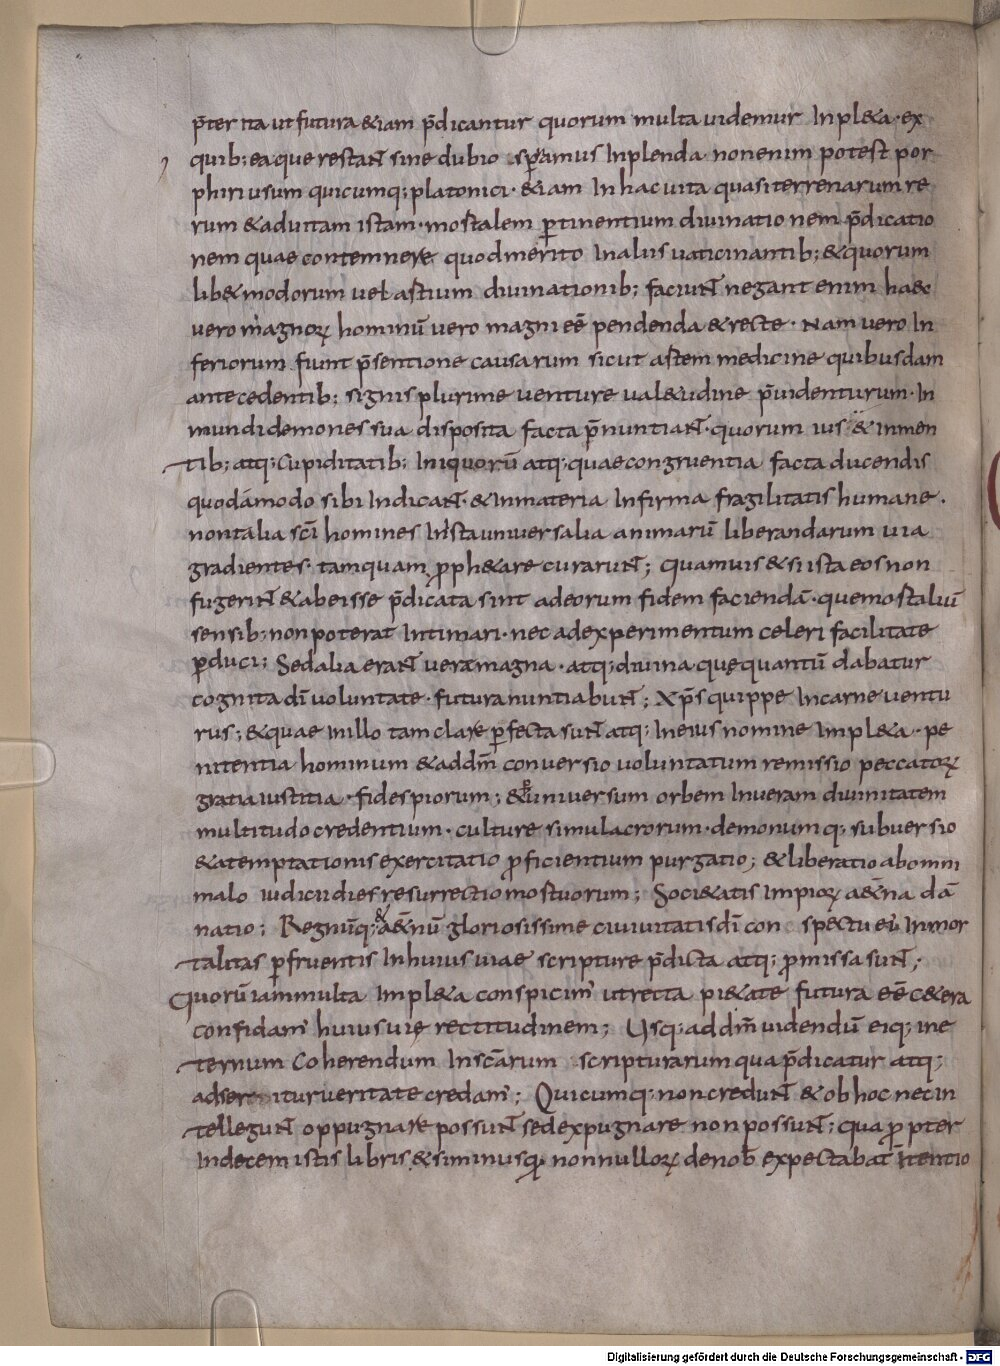 p̄ter ita ut futura &iam p̄dicantur quorum multa uidemur Inpl&a· ex
quib; ea que restant̄ sine dubio speramus Inplenda· non enim potest por
phiri usum quicumq; platonici· &iam In hac uita quasi terrenarum re
rum & ad uitam istam· mortalem ꝑtinentium diuinationem p̄dicatio
nem quae contemnere quod merito In aliis uaticinantib; & quorum
lib& modorum uel astium diuinationib; faciunt negant enim haec
uero magnorꝝ hominū uero magni eē pendenda & recte· Nam uero In
feriorum fiunt p̄sentione causarum sicut astem medicine quibusdam
antecedentib; signis plurime uenture ual&udine p̄uidenturum· In
mundi demones sua disposita facta p̄nuntiant· quorum ius & inmen
tib; atq; Cupiditatib; Iniquorū atq; quae congruentia facta ducendis
quodāmodo sibi Indicant· & Inmateria Infirma fragilitatis humane·
non talia sc̄i homines In ista uniuersalia animarū liberandarum uia
gradientes· tamquam ꝓph&are curarunt; quamuis & si ista eos non
fugerint & abeisse p̄dicata sint ad eorum fidem faciendā· que mortaliū
sensib; non poterat Intimari· nec ad experimentum celeri facilitate
ꝑduci; Sed alia erant uera & magna· atq; diuina que quantū dabatur
cognita dī uoluntate· futura nuntiabunt; Xp̄s quippe Incarne uentu
rus; & quae Inillo tam clare ꝑfecta sunt atq; In eius nomine Impl&a· pe
nitentia hominum & ad dm̄ conuersio uoluntatum remissio peccatorꝝ
gratia iustitia· fides piorum; & ꝑ uniuersum orbem Inueram diuinitatem
multitudo credentium· culture simulacrorum· demonumq; subuersio
& a temptationis exercitatio ꝓficientium purgatio; & liberatio abomni
malo iudicii dies resurrectio mortuorum; Soci&atis Impiorꝝ a&erna dā
natio; Regnūq; a&ernū gloriosissime ciuiuitatis dī conspectu eiꝰ Inmor
talitas ꝑfruentis In huius uiae scripture p̄dicta atq; ꝓmissa sunt;
Quorū iam multa Impl&a conspicimꝰ ut recta pi&ate futura eē c&era
confidamꝰ huius uię rectitudinem; Usq; ad dm̄ uidendū eiq; ine
ternum Coherendum Inscārum scripturarum qua p̄dicatur atq;
adseritur ueritate credamꝰ; Quicumq; non credunt & ob hoc nec in
tellegunt oppugnare possunt sed expugnare non possunt; qua ꝓpter
In decem istis libris & si minusq̨ nonnullorꝝ de nob̄ expectabat Itentio